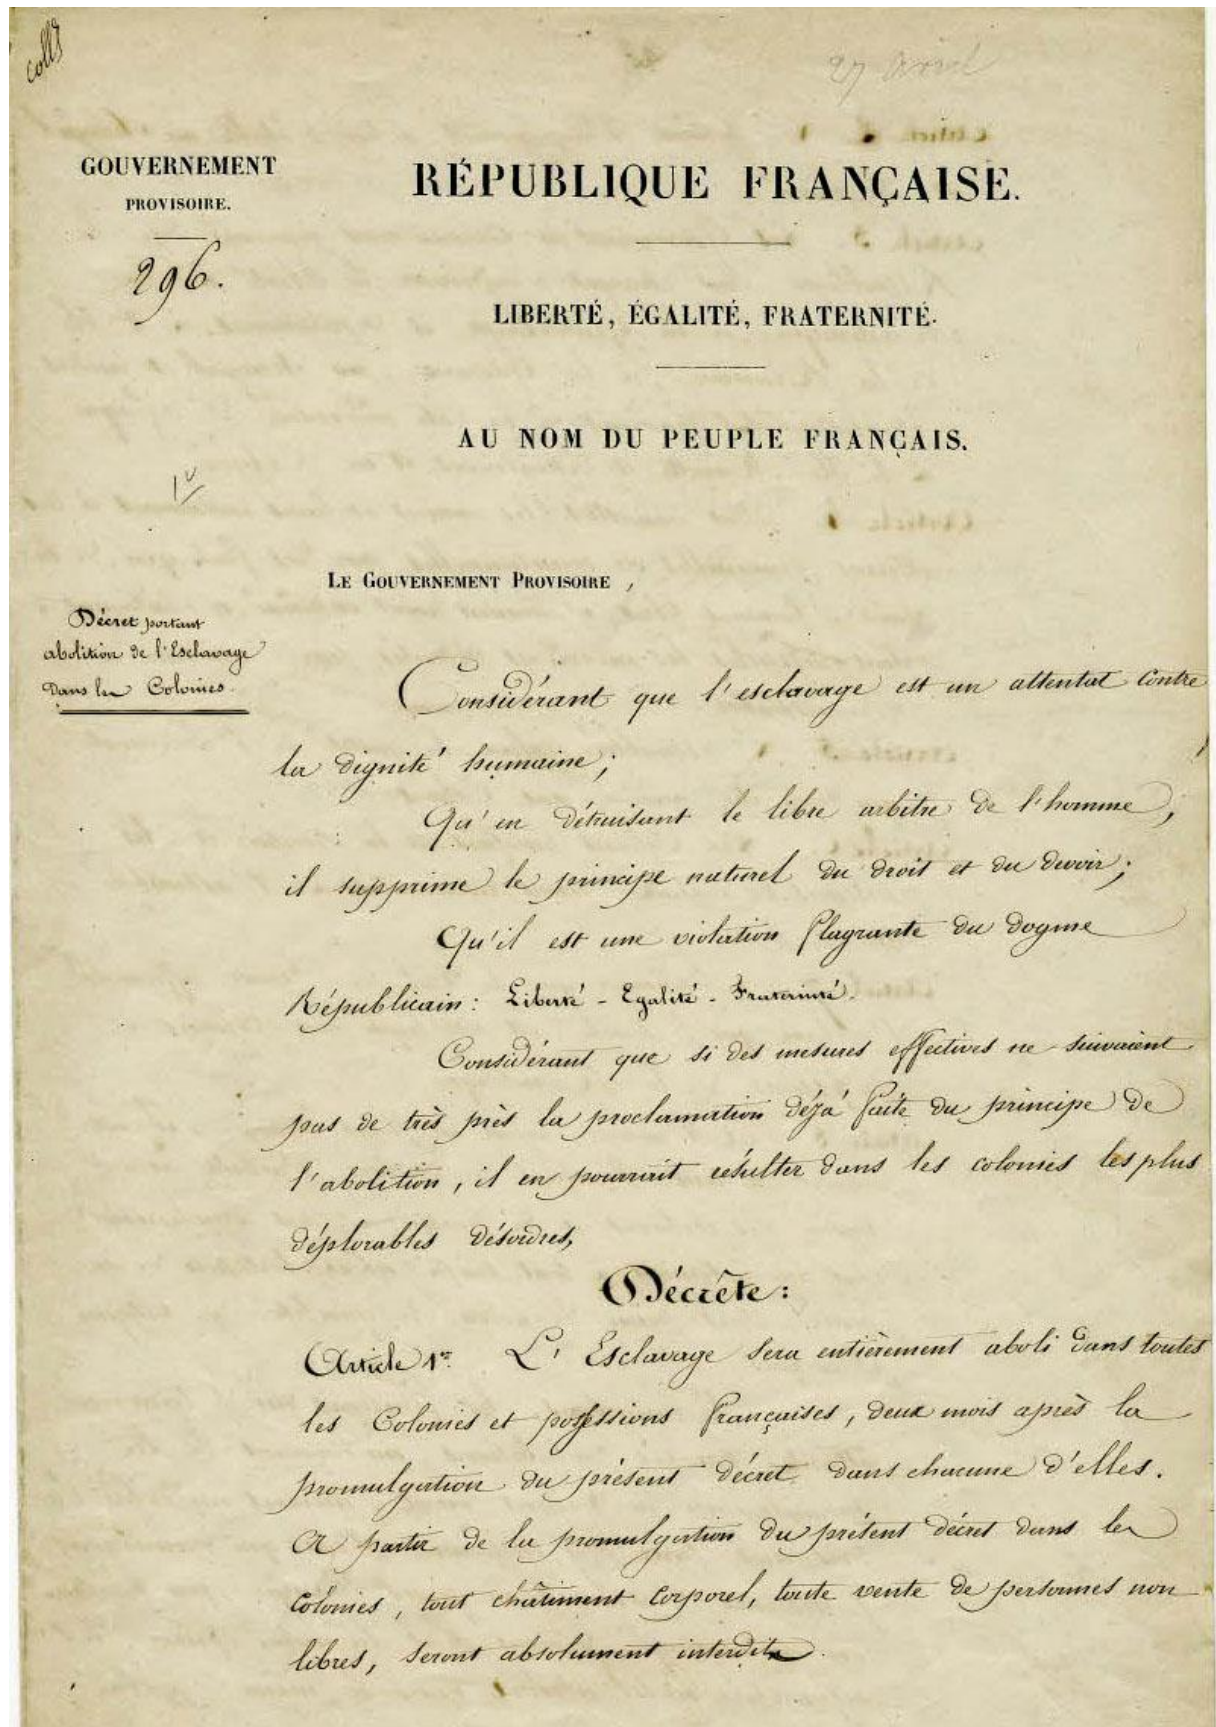 coll^é
27 avril
GOUVERNEMENT
PROVISOIRE.
296.
RÉPUBLIQUE FRANÇAISE.
LIBERTÉ, ÉGALITÉ, FRATERNITÉ.
AU NOM DU PEUPLE FRANÇAIS.
LE GOUVERNEMENT PROVISOIRE,
Décret portant
abolition de l'Esclavage
dans les Colonies.
Considérant que l'esclavage est un attentat contre
la dignité humaine;
Qu'en détruisant le libre arbitre de l'homme,
il supprime le principe naturel du droit et du devoir;
Qu'il est une violation flagrante du dogme
Républicain: Liberté - Egalité - Fraternité.
Considérant que si des mesures effectives ne suivaient
pas de très près la proclamation déjà faite du principe de
l'abolition, il en pourrait résulter dans les colonies les plus
déplorables désordres,
Décrète:
Article 1er. L'Esclavage sera entièrement aboli dans toutes
les Colonies et possessions françaises, deux mois après la
promulgation du présent décret dans chacune d'elles.
A partir de la promulgation du présent décret dans les
colonies, tout châtiment corporel, toute vente de personnes non
libres, seront absolument interdits.